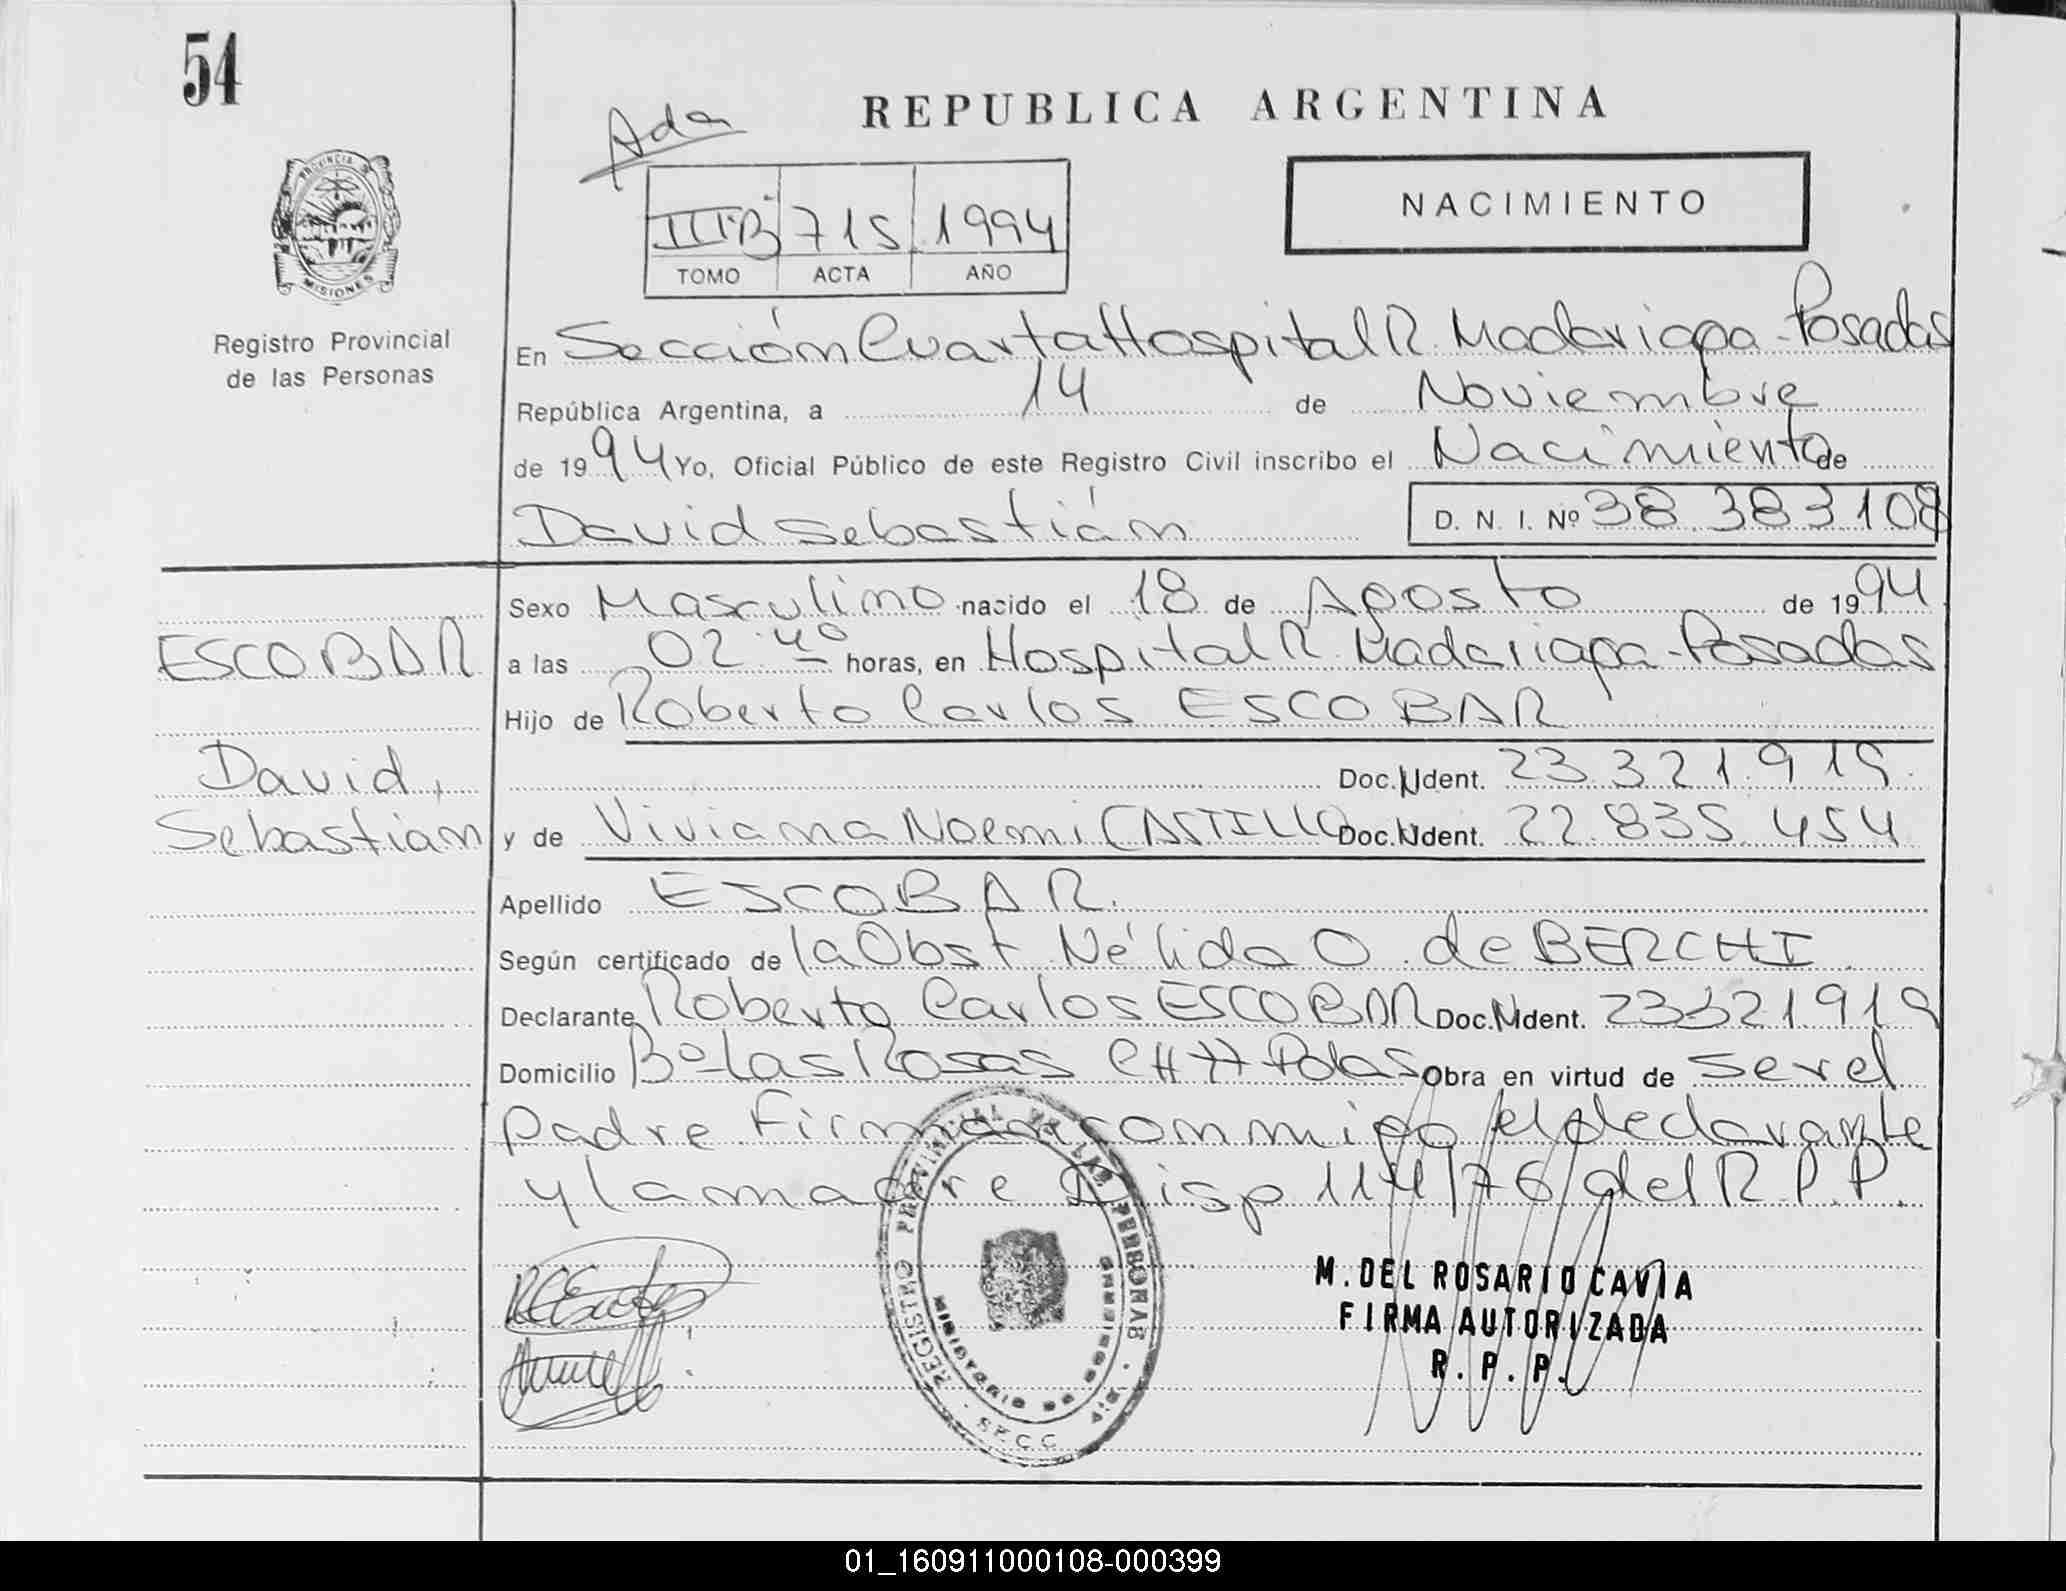 54
REPUBLICA ARGENTINA
Ada
PROVINCIA DE
MISIONES
III·B 715 1994
TOMO ACTA AÑO
NACIMIENTO
Registro Provincial
de las Personas
En Sección Cuarta Hospital R. Madariaga - Posadas
República Argentina, a 14 de Noviembre
de 1994 Yo, Oficial Público de este Registro Civil inscribo el Nacimiento de
David Sebastián D. N. I. Nº 38 383 108
Sexo Masculino nacido el 18 de Agosto de 1994
ESCOBAR
a las 02:40 horas, en Hospital R. Madariaga - Posadas
Hijo de Roberto Carlos ESCOBAR
David,
Doc. N Ident. 23.321.919
Sebastian
y de Viviana Noemi CASTILLO Doc. N Ident. 22.835.454
Apellido ESCOBAR.
Según certificado de la Obst Nélida O. de BERCHI.
Declarante Roberto Carlos ESCOBAR Doc. N Ident. 23321919
Domicilio Bº las Rosas CH 77 Pdas Obra en virtud de ser el
padre Firman conmigo el declarante
y la madre Disp 114/76 del R.P.P.
REGISTRO PROVINCIAL DE LAS PERSONAS
SECC
M. DEL ROSARIO CAVIA
FIRMA AUTORIZADA
R. P. P.
01_160911000108-000399